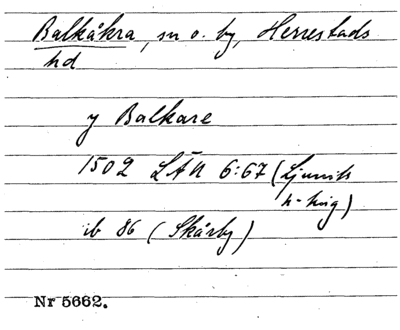 Balkåkra, sn o. by, Herrestads
hd
y Balkare
1502 LÄU 6:67 (Ljunits
h-ting)
ib 86 (Skårby)
Nr 5662.